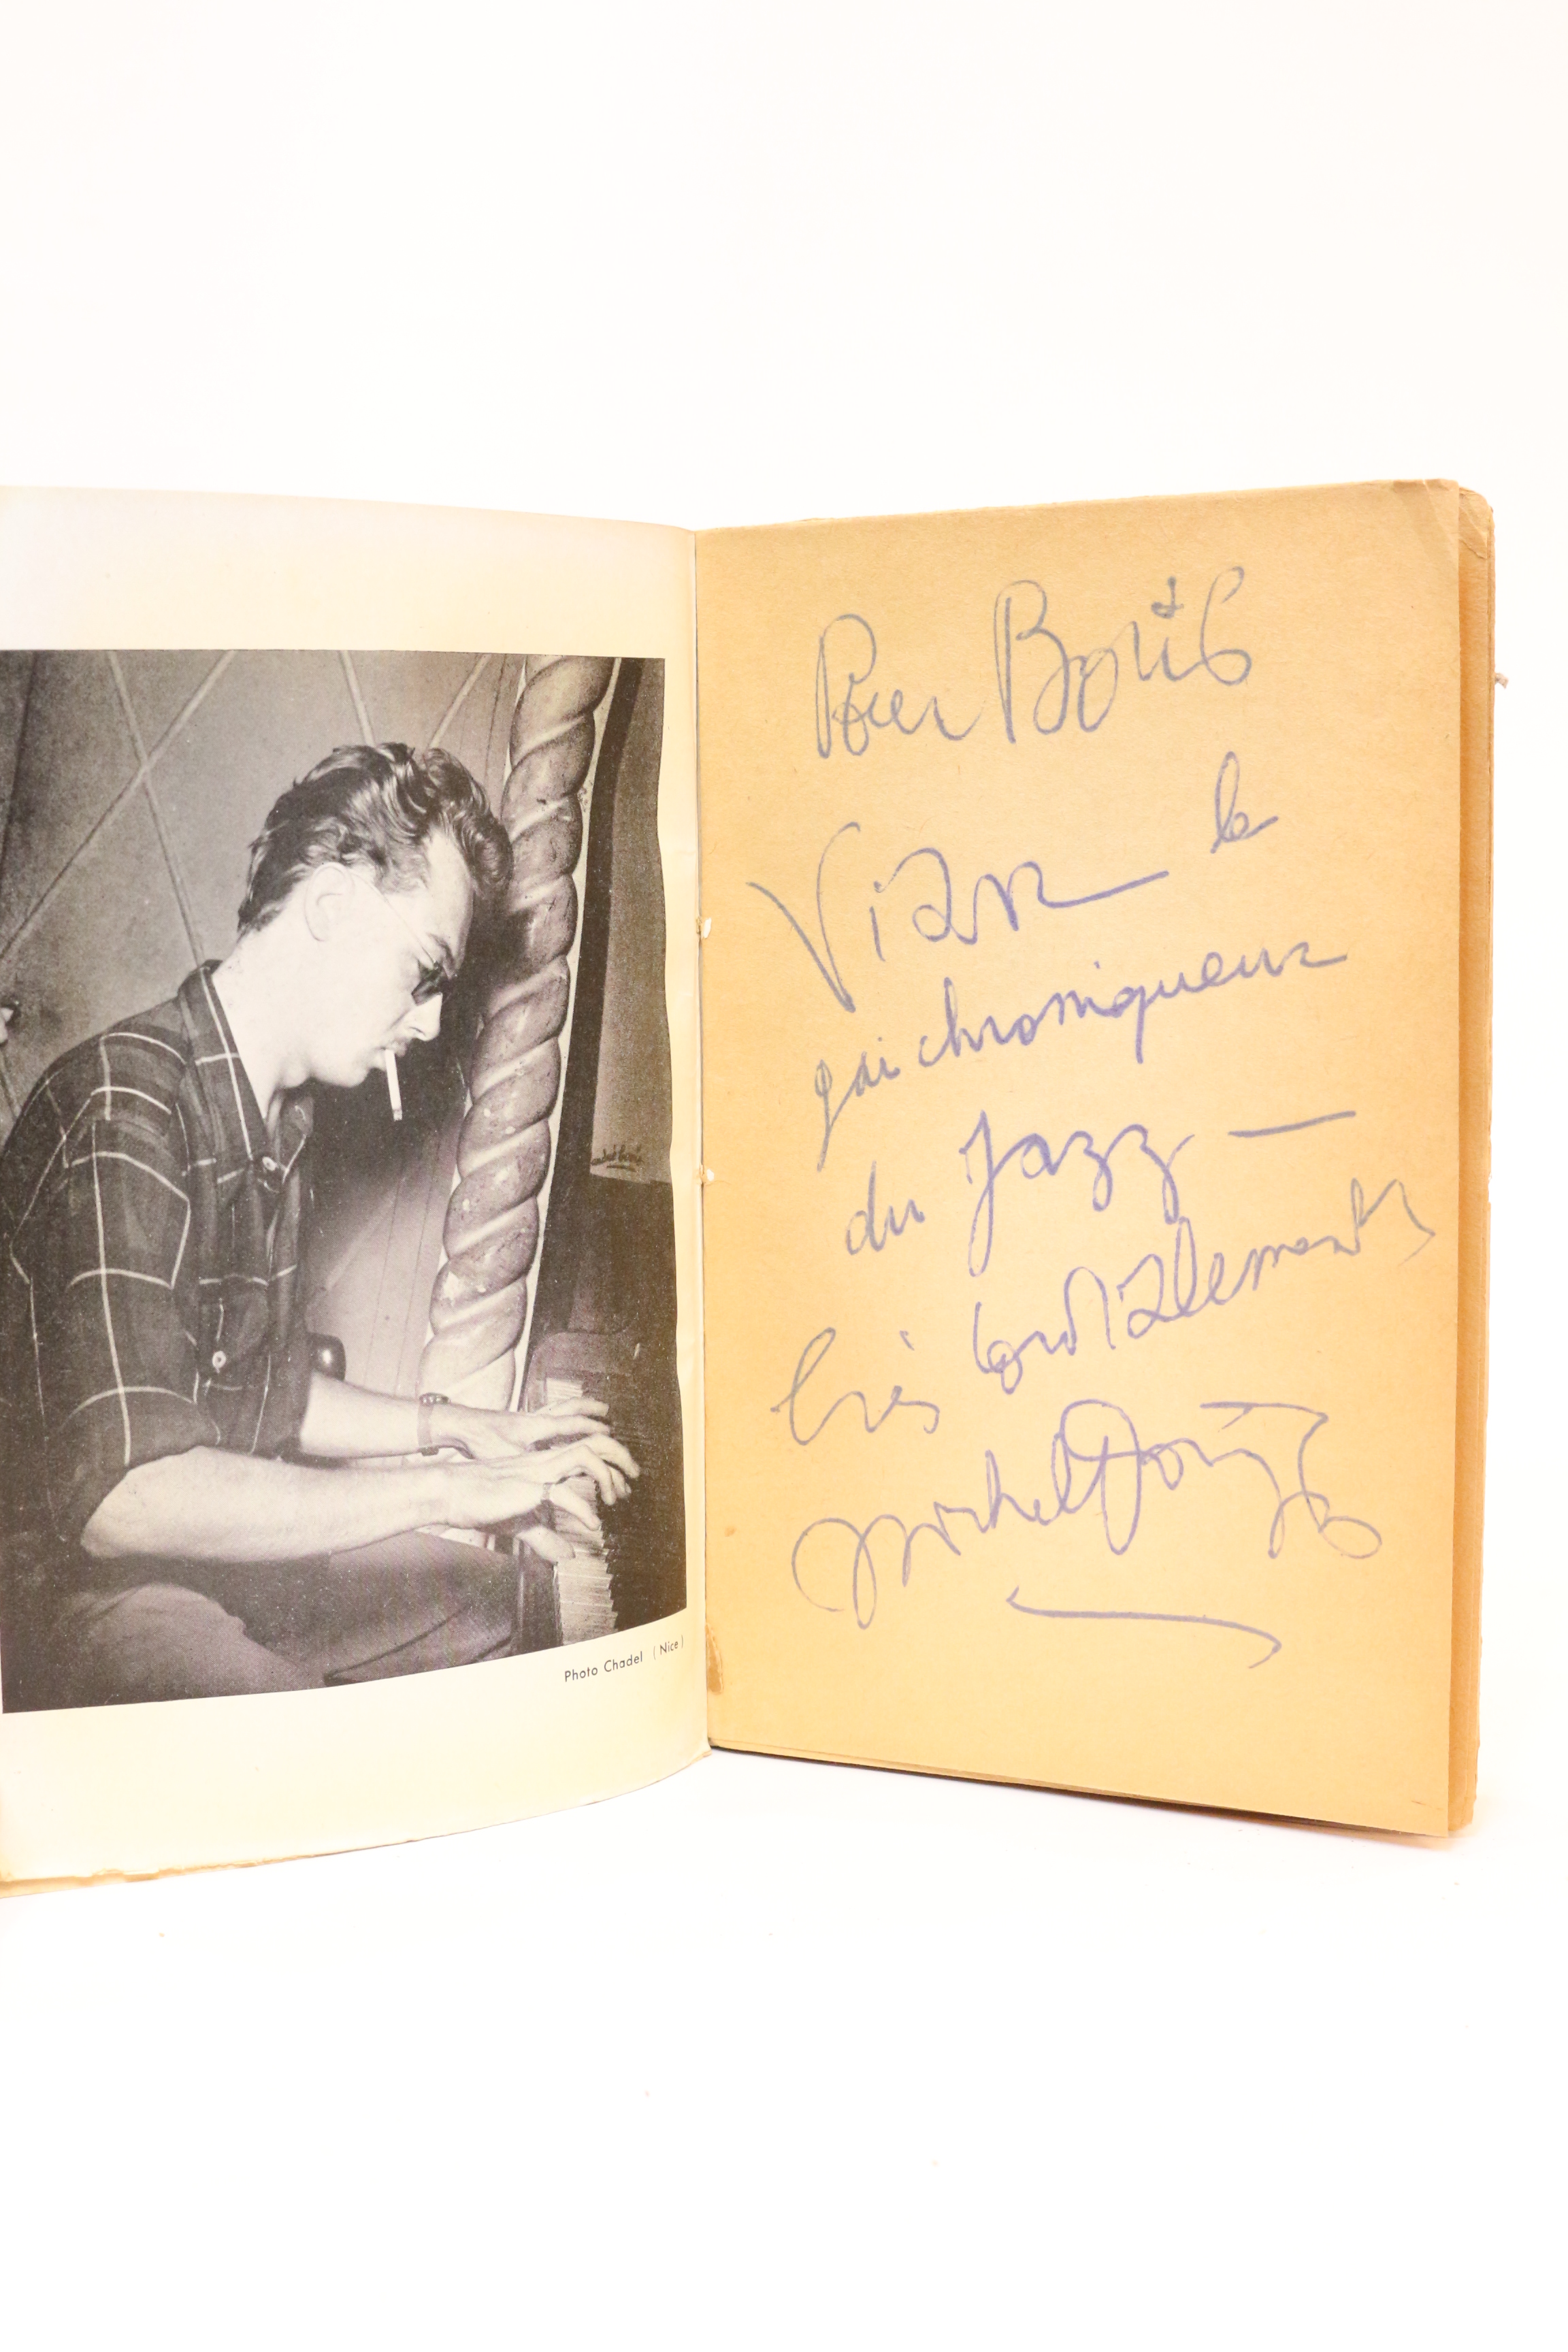 Photo Chadel (Nice)
Pour Boris
Vian le
gai chroniqueur
du Jazz —
très cordialement
Michel Dorigné